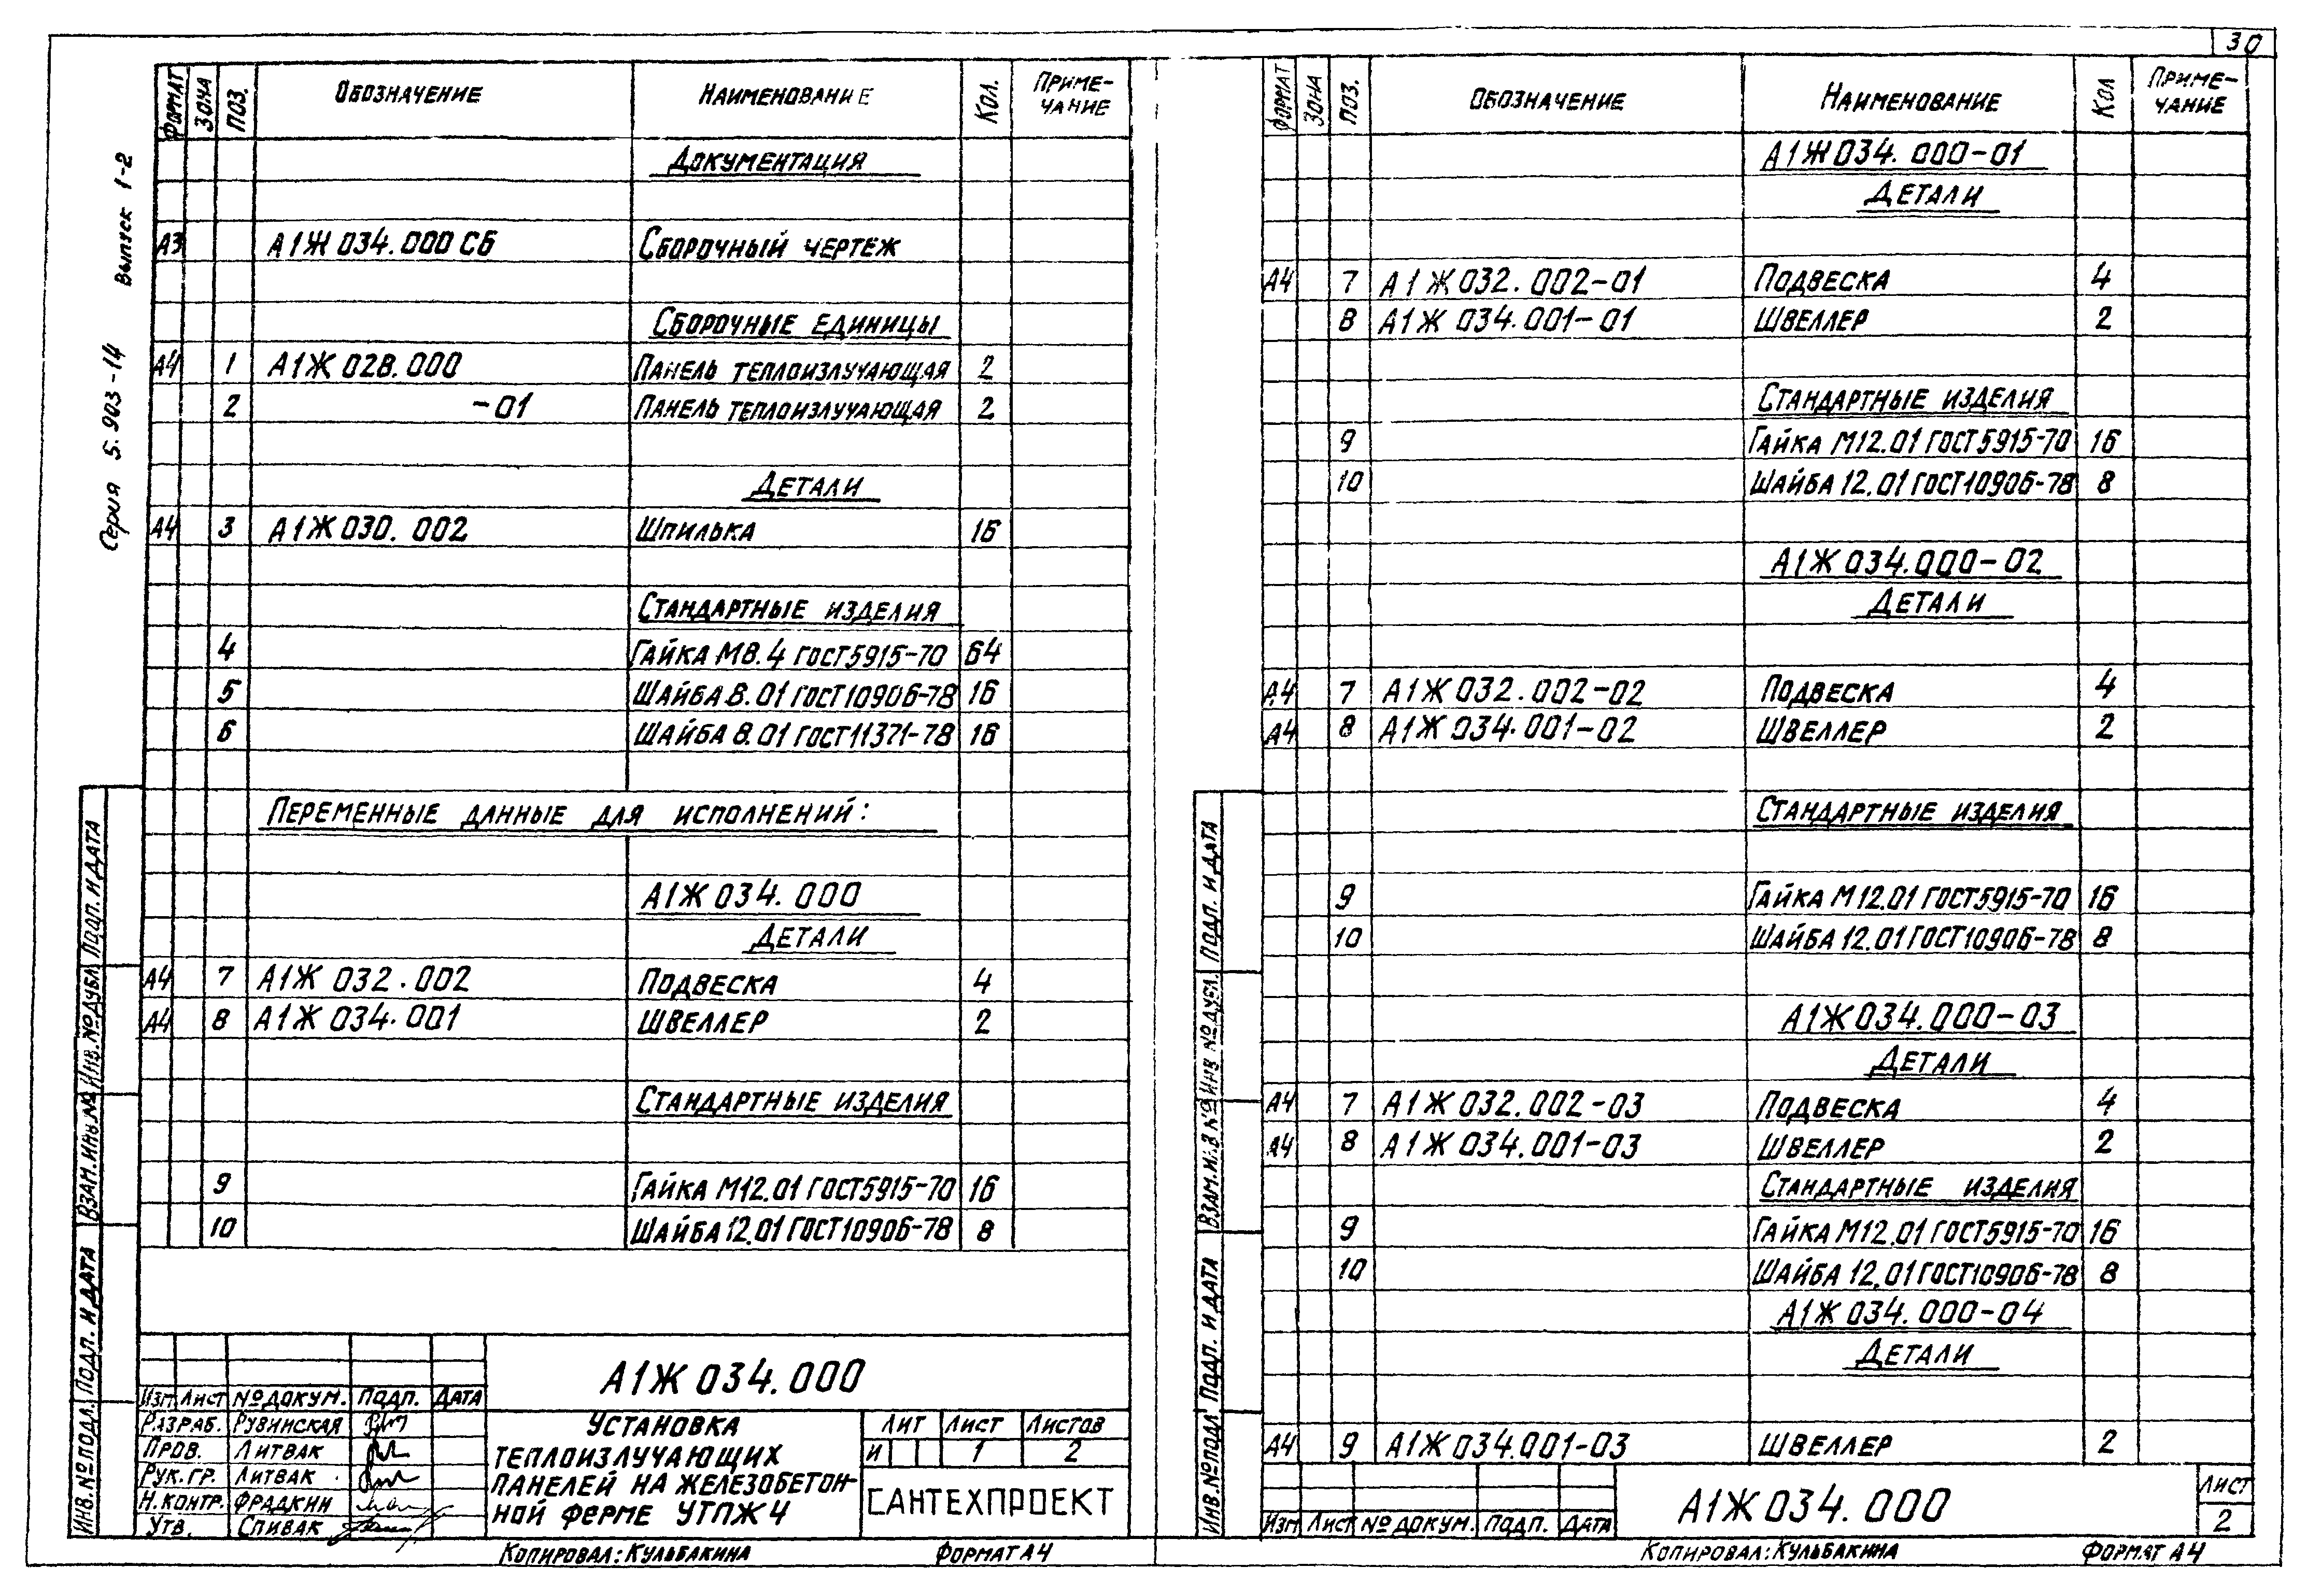 30
Серия 5.903-14 Выпуск 1-2
Формат Зона Поз. Обозначение Наименование Кол. Примечание
Документация
А3 А1Ж 034.000 СБ Сборочный чертеж
Сборочные единицы
А4 1 А1Ж 028.000 Панель теплоизлучающая 2
2 -01 Панель теплоизлучающая 2
Детали
А4 3 А1Ж 030.002 Шпилька 16
Стандартные изделия
4 Гайка М8.4 ГОСТ 5915-70 64
5 Шайба 8.01 ГОСТ 10906-78 16
6 Шайба 8.01 ГОСТ 11371-78 16
Переменные данные для исполнений:
А1Ж 034.000
Детали
А4 7 А1Ж 032.002 Подвеска 4
А4 8 А1Ж 034.001 Швеллер 2
Стандартные изделия
9 Гайка М12.01 ГОСТ 5915-70 16
10 Шайба 12.01 ГОСТ 10906-78 8
Инв.№подл. Подп. и дата Взам.инв.№ Инв.№дубл. Подп. и дата
А1Ж 034.000
Изм Лист № докум. Подп. Дата
Разраб. Рувинская
Пров. Литвак
Рук.гр. Литвак
Н.контр. Фрадкин
Утв. Спивак
Установка
теплоизлучающих
панелей на железобетон-
ной ферме УТПЖ4
Лит Лист Листов
И 1 2
САНТЕХПРОЕКТ
Копировал: Кульбакина Формат А4
Формат Зона Поз. Обозначение Наименование Кол Примечание
А1Ж 034.000-01
Детали
А4 7 А1Ж 032.002-01 Подвеска 4
8 А1Ж 034.001-01 Швеллер 2
Стандартные изделия
9 Гайка М12.01 ГОСТ 5915-70 16
10 Шайба 12.01 ГОСТ 10906-78 8
А1Ж 034.000-02
Детали
А4 7 А1Ж 032.002-02 Подвеска 4
А4 8 А1Ж 034.001-02 Швеллер 2
Стандартные изделия
9 Гайка М12.01 ГОСТ 5915-70 16
10 Шайба 12.01 ГОСТ 10906-78 8
А1Ж 034.000-03
Детали
А4 7 А1Ж 032.002-03 Подвеска 4
А4 8 А1Ж 034.001-03 Швеллер 2
Стандартные изделия
9 Гайка М12.01 ГОСТ 5915-70 16
10 Шайба 12.01 ГОСТ 10906-78 8
А1Ж 034.000-04
Детали
А4 9 А1Ж 034.001-03 Швеллер 2
Инв.№подл Подп. и дата Взам.инв № Инв №дубл. Подп. и дата
Изм Лист № докум. Подп. Дата
А1Ж 034.000
Лист
2
Копировал: Кульбакина Формат А4